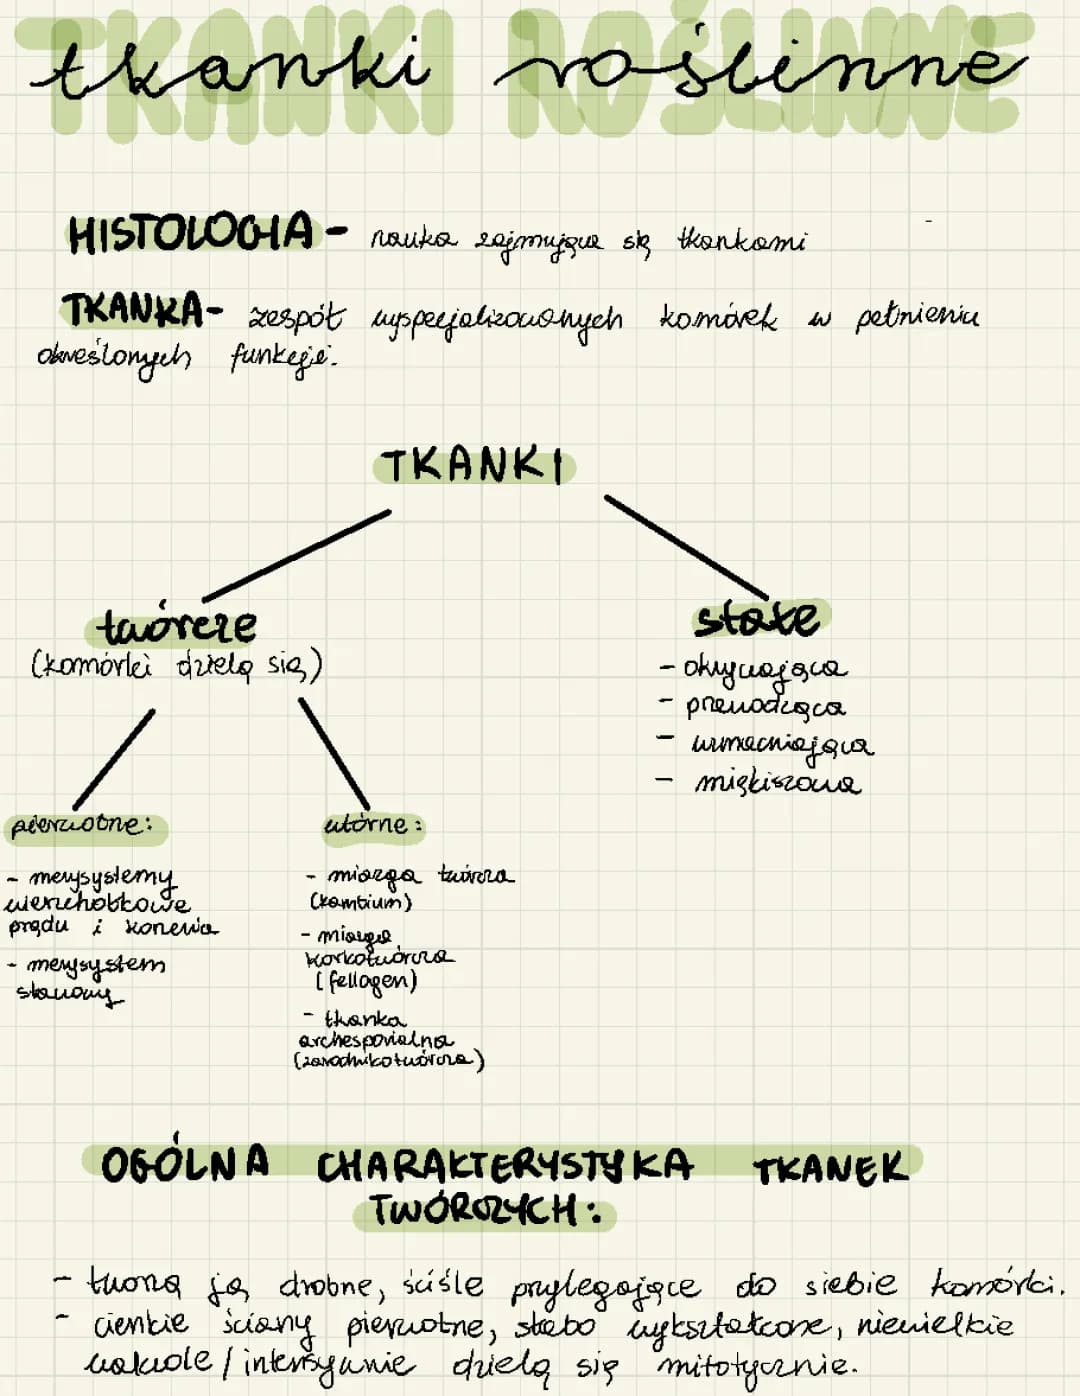 TKANKI ROŚLINNE
tkanki roślinne
HISTOLOGIA - nauka zajmująca się tkankami
TKANKA- zespół wyspecjalizowanych komórek w pełnieniu
określonych funkcji.
TKANKI
twórcze
(komórki dzielą się)
stałe
- okrywająca
- przewodząca
- wzmacniająca
- miękiszowa
pierwotne:
- merysystemy
wierzchołkowe
prądu i konenia
- merysystem
stanowy
wtórne:
- miazga twórcza
(kambium)
- miazga
korkotwórcza
(fellogen)
- tkanka
archesporialna
(zarodnikotwórcza)
OGÓLNA CHARAKTERYSTYKA TKANEK
TWÓRCZYCH:
- tworzą ją drobne, ściśle przylegające do siebie komórki.
- cienkie ściany pierwotne, słabo wykształcone, niewielkie
wakuole / intensywnie dzielą się mitotycznie.